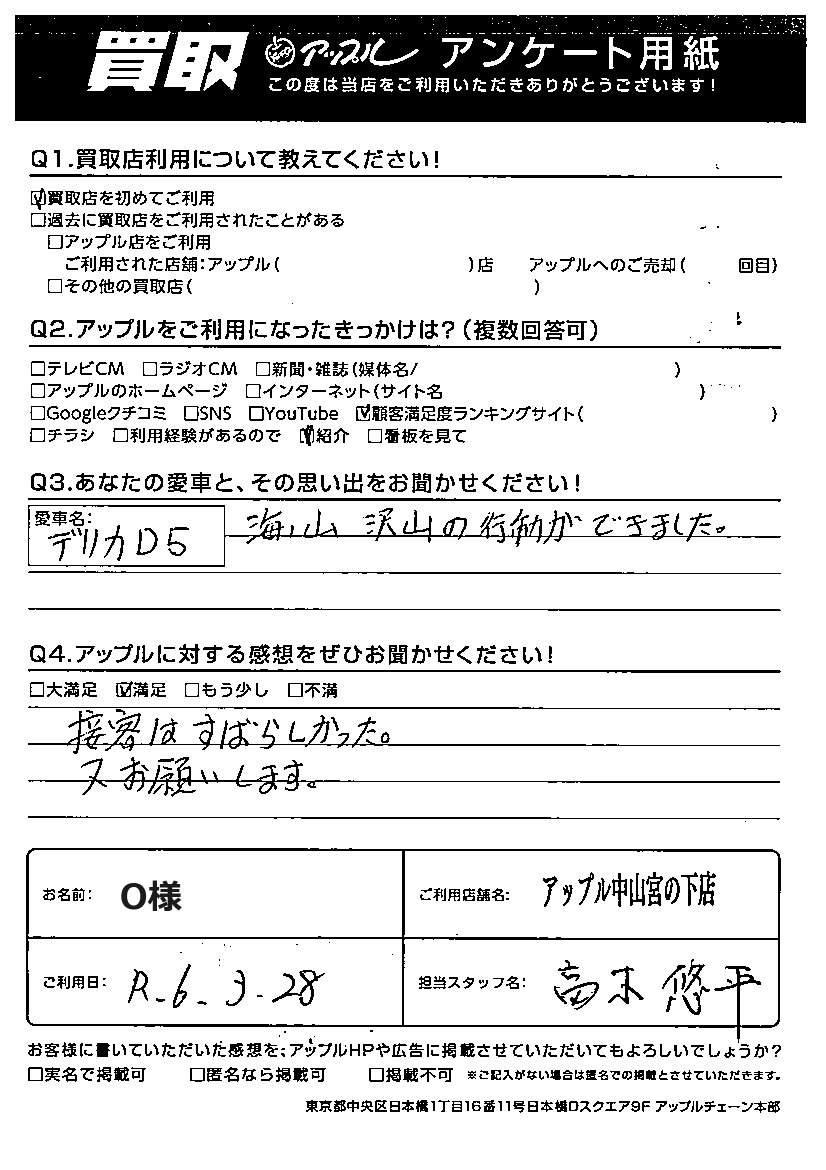 買取 アップル アンケート用紙
この度は当店をご利用いただきありがとうございます!
Q1.買取店利用について教えてください!
☑買取店を初めてご利用
□過去に買取店をご利用されたことがある
□アップル店をご利用
ご利用された店舗:アップル( )店 アップルへのご売却( 回目)
□その他の買取店( )
Q2.アップルをご利用になったきっかけは?(複数回答可)
□テレビCM □ラジオCM □新聞・雑誌(媒体名/ )
□アップルのホームページ □インターネット(サイト名 )
□Googleクチコミ □SNS □YouTube ☑顧客満足度ランキングサイト( )
□チラシ □利用経験があるので ☑紹介 □看板を見て
Q3.あなたの愛車と、その思い出をお聞かせください!
愛車名:
デリカD5 海、山 沢山の行動ができました。
Q4.アップルに対する感想をぜひお聞かせください!
□大満足 ☑満足 □もう少し □不満
接客はすばらしかった。
又お願いします。
お名前: O様 ご利用店舗名: アップル中山宮の下店
ご利用日: R.6.3.28 担当スタッフ名: 高木 悠平
お客様に書いていただいた感想を、アップルHPや広告に掲載させていただいてもよろしいでしょうか?
□実名で掲載可 □匿名なら掲載可 □掲載不可 ※ご記入がない場合は匿名での掲載とさせていただきます。
東京都中央区日本橋1丁目16番11号日本橋Dスクエア9F アップルチェーン本部